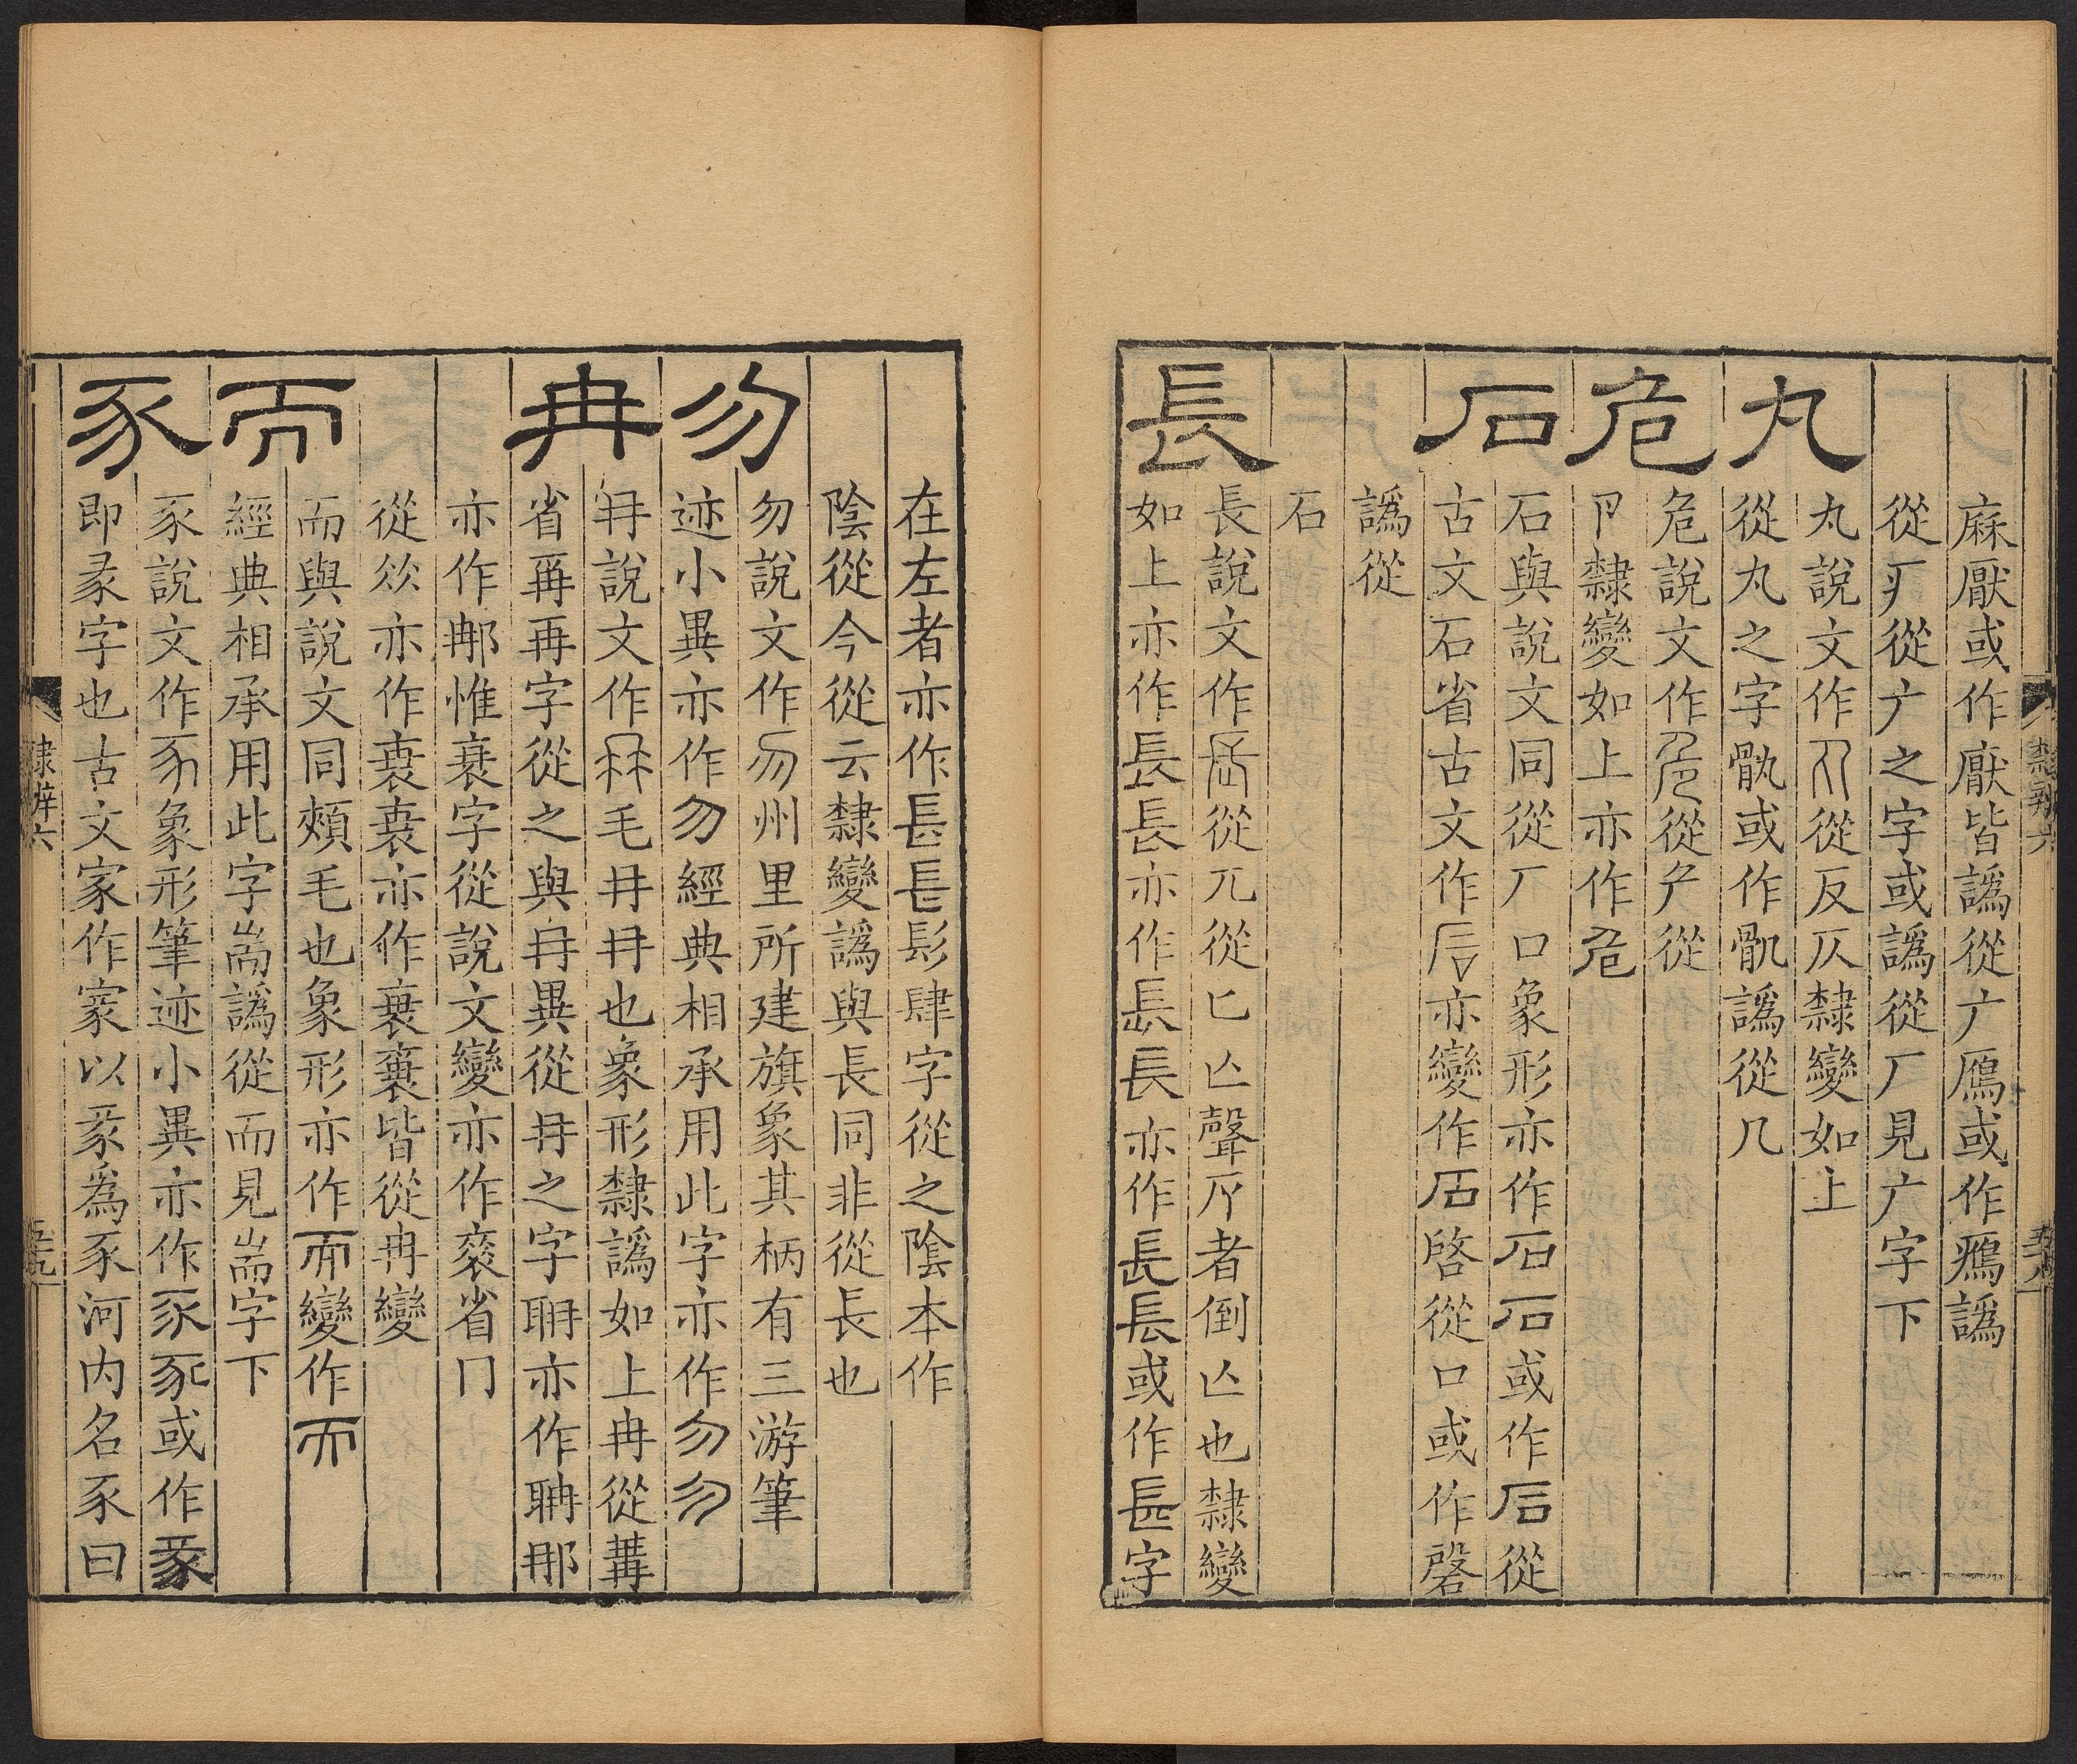 麻厭或作厭皆譌從广鴈或作鴈譌
從疒從广之字或譌從厂見广字下
丸
丸說文作從反仄隸變如上
從丸之字骫或作骩譌從几
危
危說文作從厃從
卪隸變如上亦作危
石
石與說文同從厂口象形亦作石石或作后從
古文石省古文作亦變作石啓從口或作磬
譌從
石
長
長說文作從兀從匕亾聲𠂆者倒亾也隸變
如上亦作長長亦作長長亦作長長或作字
在左者亦作長镸髟肆字從之陰本作
陰從今從云隸變譌與長同非從長也
勿
勿說文作勿州里所建旗象其柄有三游筆
迹小異亦作勿經典相承用此字亦作勿勿
冉
冄說文作毛冄冄也象形隸譌如上冉從冓
省爯再字從之與冄異從冄之字聃亦作聃𨙻
亦作䣸惟衰字從說文變亦作衰省冂
從㸚亦作衰衰亦作衰衰皆從冉變
而
而與說文同頰毛也象形亦作而變作而
經典相承用此字耑譌從而見耑字下
豕
豕說文作豕象形筆迹小異亦作豕豕或作彖
即彖字也古文家作家以彖爲豕河内名豕曰
隸辨六
隸辨六